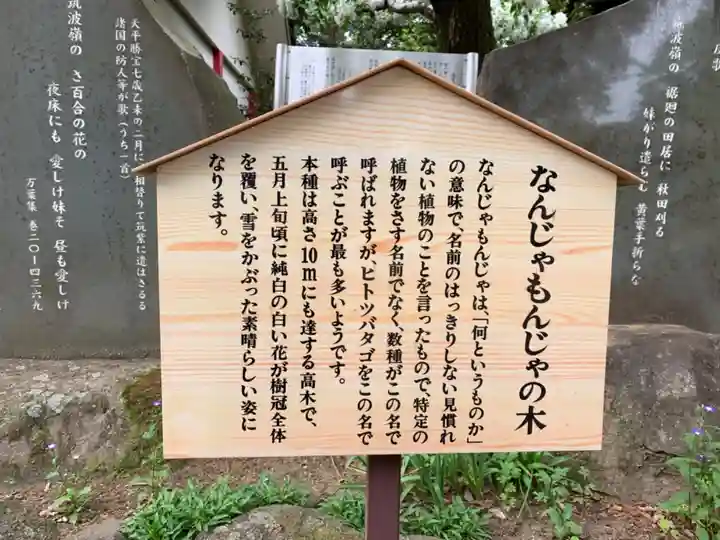 なんじゃもんじゃの木
なんじゃもんじゃは、「何というものか」
の意味で、名前のはっきりしない見慣れ
ない植物のことを言ったもので、特定の
植物をさす名前でなく、数種がこの名で
呼ばれますが、ヒトツバタゴをこの名で
呼ぶことが最も多いようです。
本種は高さ10mにも達する高木で、
五月上旬頃に純白の白い花が樹冠全体
を覆い、雪をかぶった素晴らしい姿に
なります。
筑波嶺の 裾廻の田居に 秋田刈る
妹がり遣らむ 黄葉手折らな
天平勝宝七歳乙未の二月に相替りて筑紫に遣はさるる
諸国の防人等が歌(うち一首)
筑波嶺の さ百合の花の
夜床にも 愛しけ妹そ 昼も愛しけ
万葉集 巻二〇ー四三六九